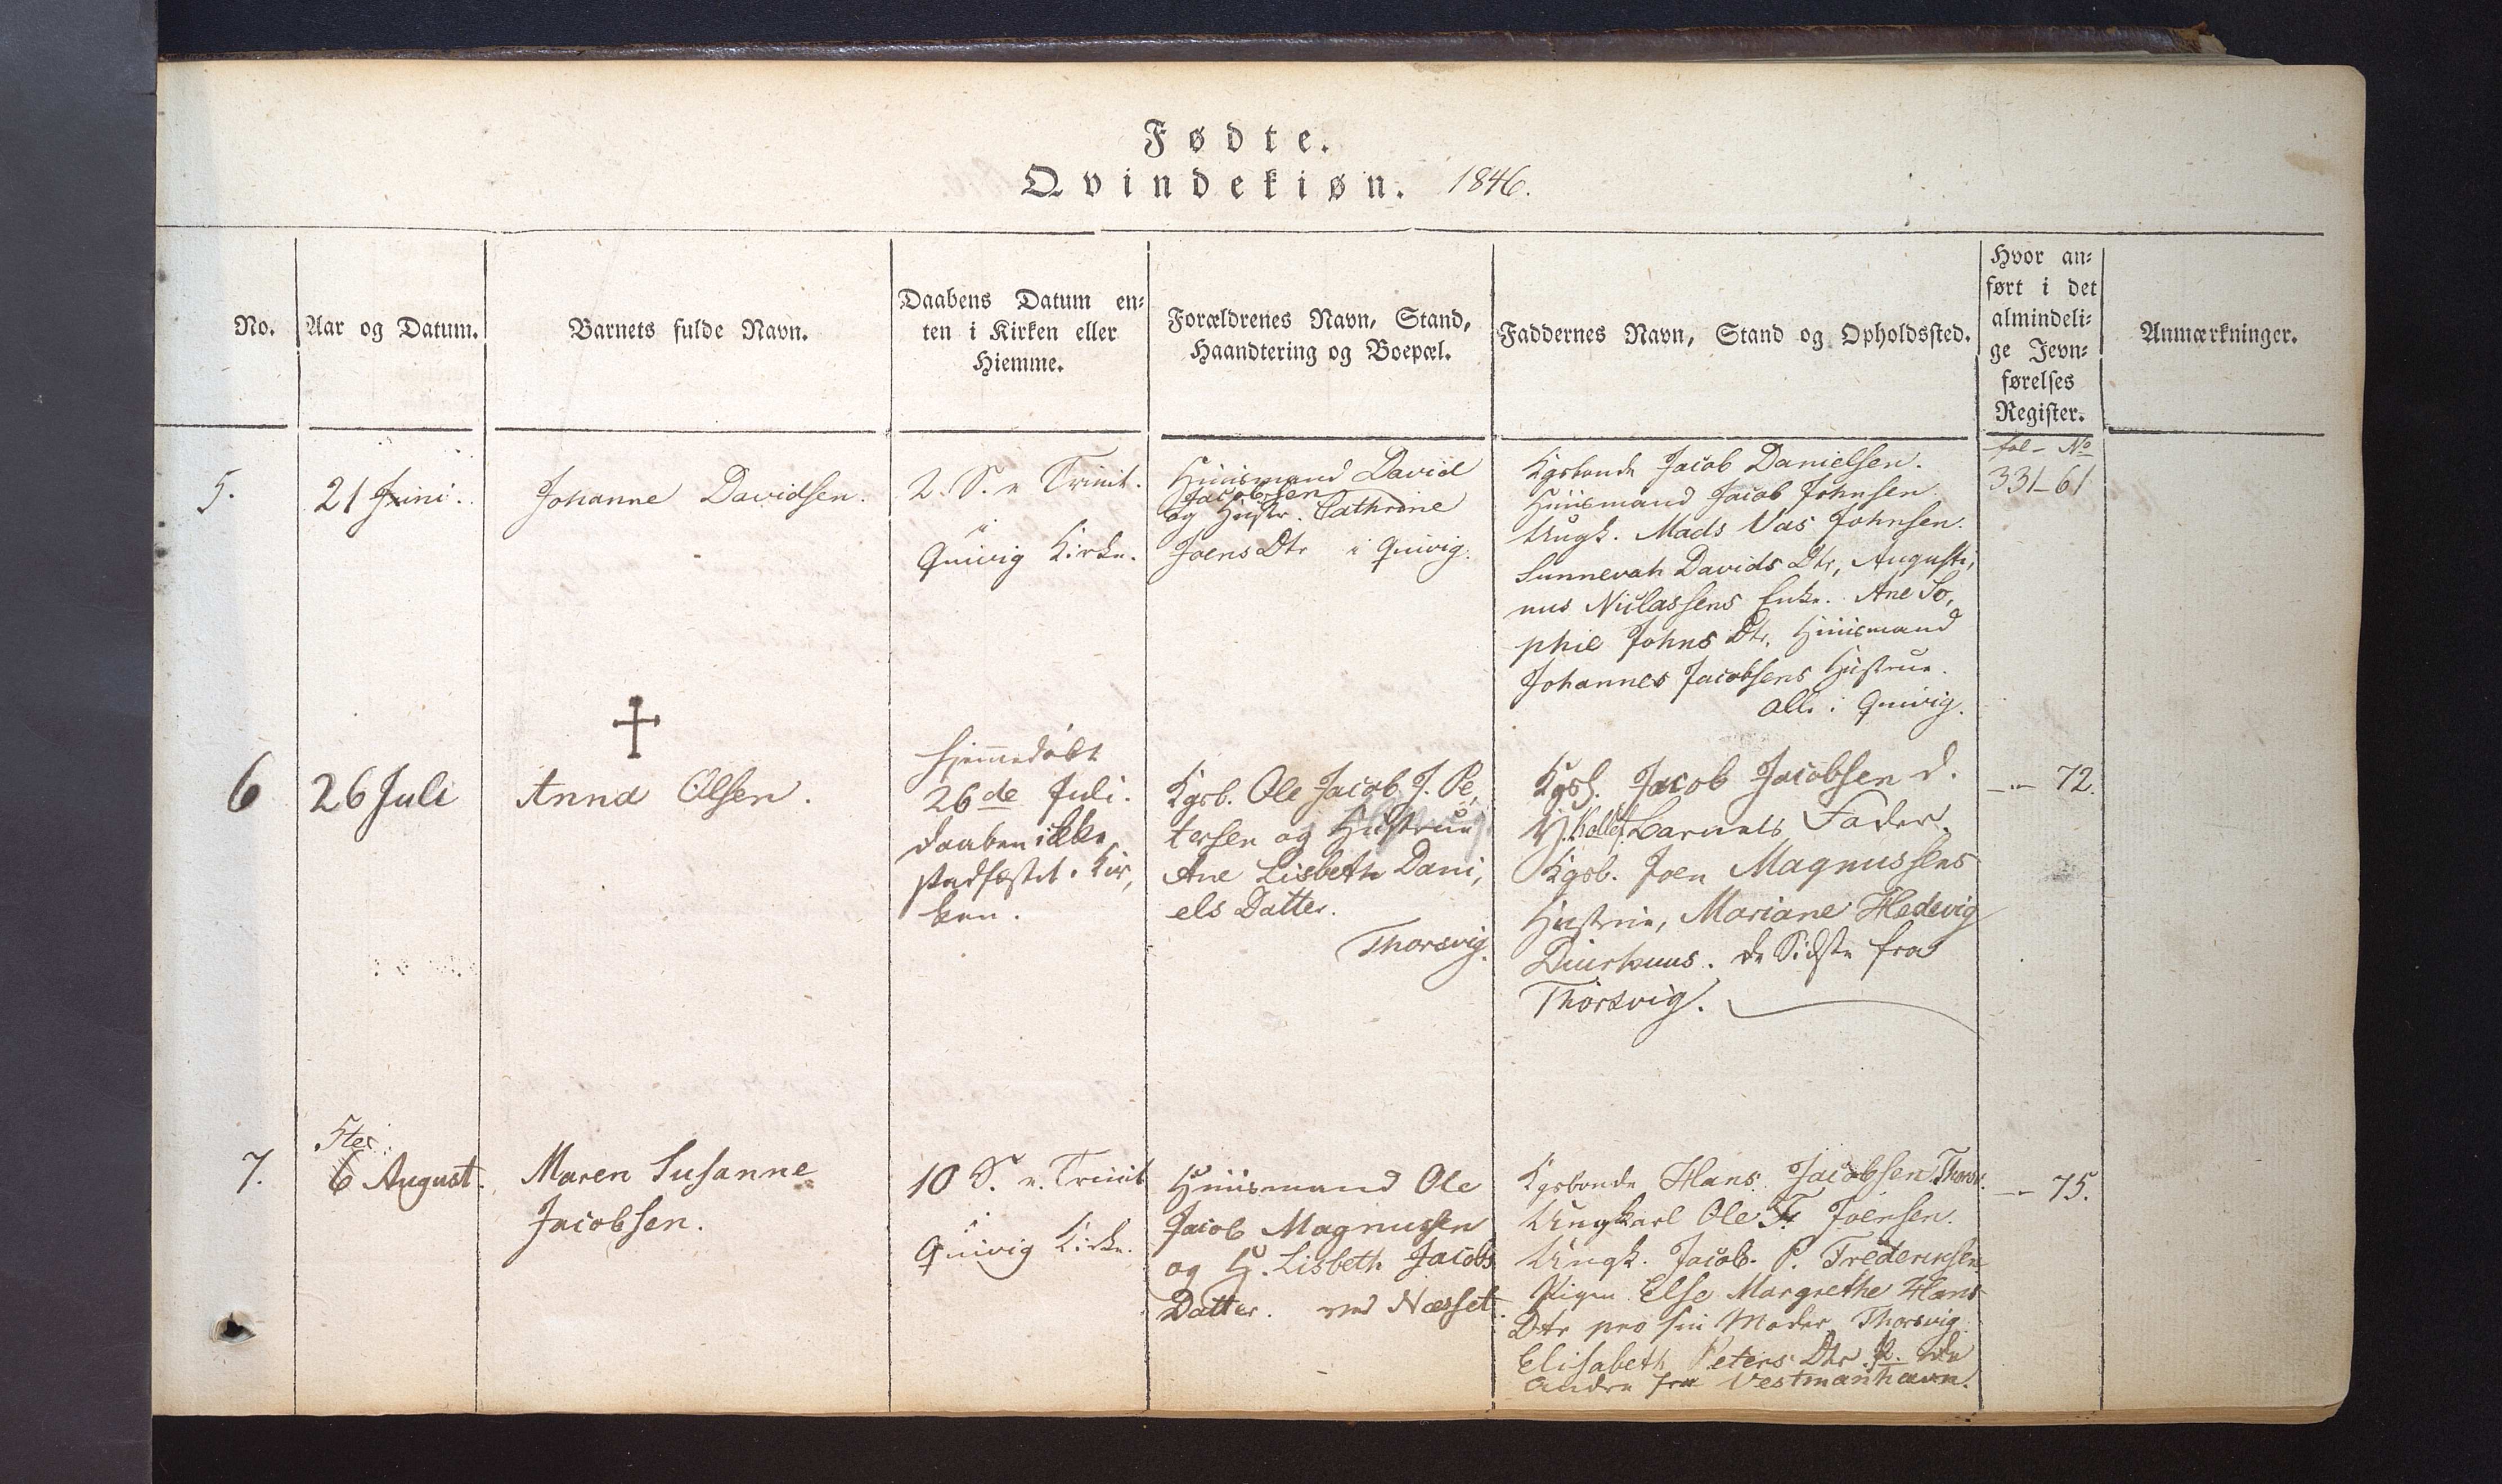 Fødte.
Qvindekiøn. 1846.
No.
Aar og Datum.
Barnets fulde Navn.
Daabens Datum en-
ten i Kirken eller
Hiemme.
Forældrenes Navn, Stand,
Haandtering og Boepæl.
Faddernes Navn, Stand og Opholdssted.
Hvor an-
ført i det
almindeli-
ge Jevn-
førelses
Register.
Anmærkninger.
5.
21 Juni.
Johanne Davidsen.
2. S. e. Trinit.
i
Quivig Kirke.
Huusmand David
Jacobsen
og Hustr. Cathrine
Joens Dtr i Quivig.
Kgsbonde Jacob Danielsen.
Huusmand Jacob Johnsen
Ungk. Mads Vas Johnsen.
Sunnevah Davids Dtr, Augusti,
nus Niclassens Enke. Ane So,
phie Johns Dtr, Huusmand
Johannes Jacobsens Hustrue.
Alle i Quivig.
fol - No
331-61
6
26 Juli
Anna Olsen.
Hjemmedøbt
26de Juli.
Daaben ikke
stadfæstet i Kir,
ken.
Kgsb. Ole Jacob J. Pe,
tersen og Hustrue
Ane Lisbeth Dani,
els Datter.
Thorsvig.
Kgsb. Jacob Jacobsen d.
Y. Kalls. Barnets Fader.
Kgsb. Joen Magnussens
Hustrue, Mariane Hedevig
Diurhuus. De Sidste fra
Thorsvig.
-"- 72.
7.
5te
6 August.
Maren Susanne
Jacobsen.
10 S. e. Trinit
i
Quivig Kirke.
Huusmand Ole
Jacob Magnussen
og H. Lisbeth Jacobs
Datter. ved Næsset.
Kgsbonde Hans Jacobsen Thorsv.
Ungkarl Ole Fr Joensen.
Ungk. Jacob P. Frederiksen
Pigen Else Margrethe Hans
Dtr pro sin Moder Thorsvig.
Elisabeth Peters Dtr De
Andre fra Vestmanhavn.
-"- 75.